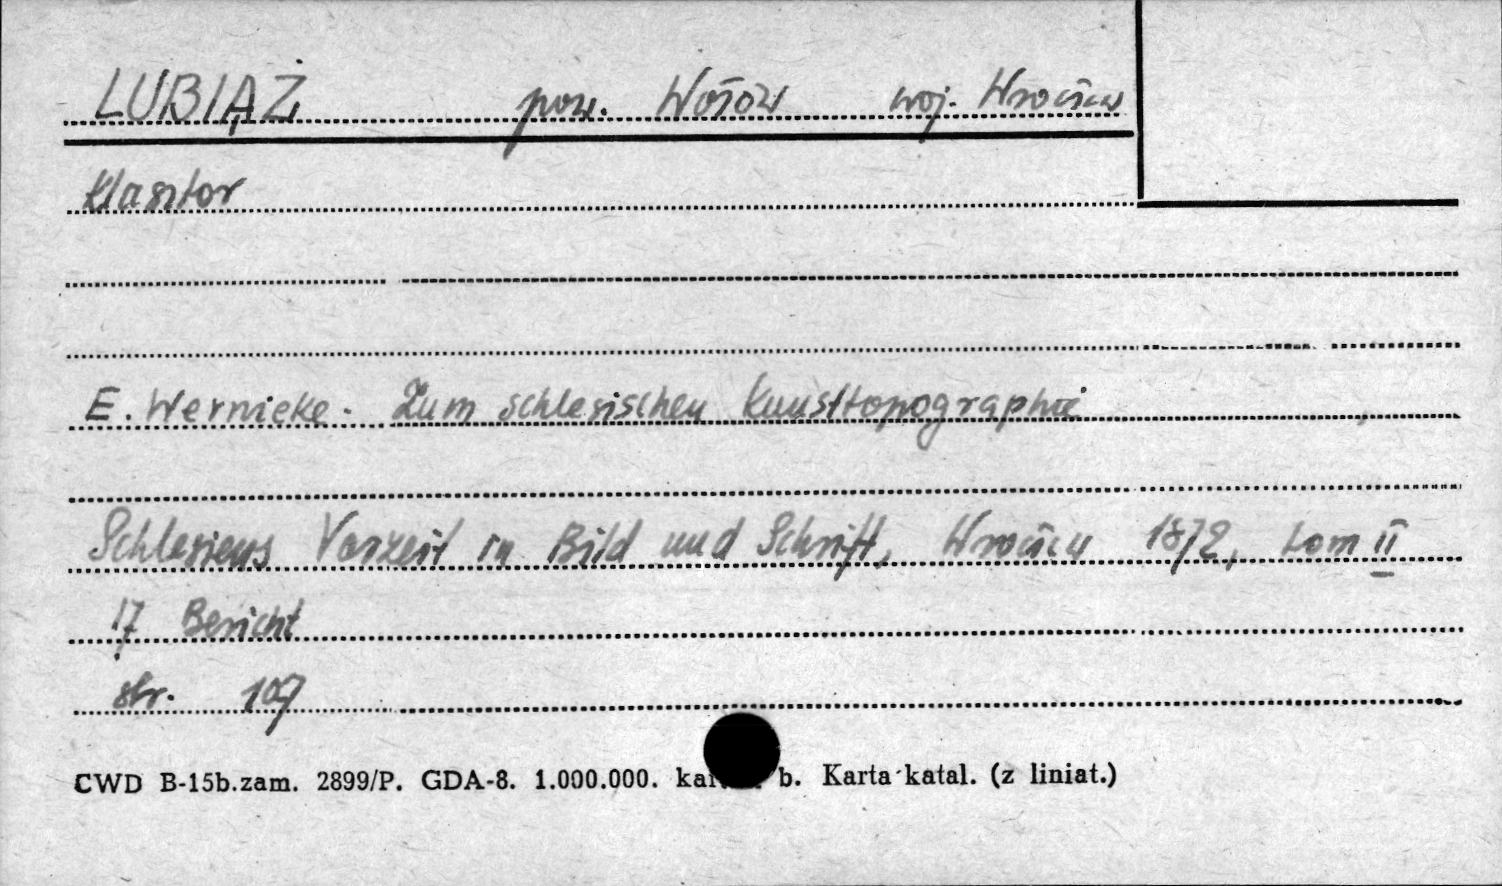 LUBIĄŻ pow. Wołów woj. Wrocław
Klasztor
E. Wernicke. Zum schlesischen Kunsttopographie,
Schlesiens Vorzeit in Bild und Schrift, Wrocław 1872, tom II
17 Bericht
str. 107
CWD B-15b.zam. 2899/P. GDA-8. 1.000.000. b. Karta katal. (z liniat.)